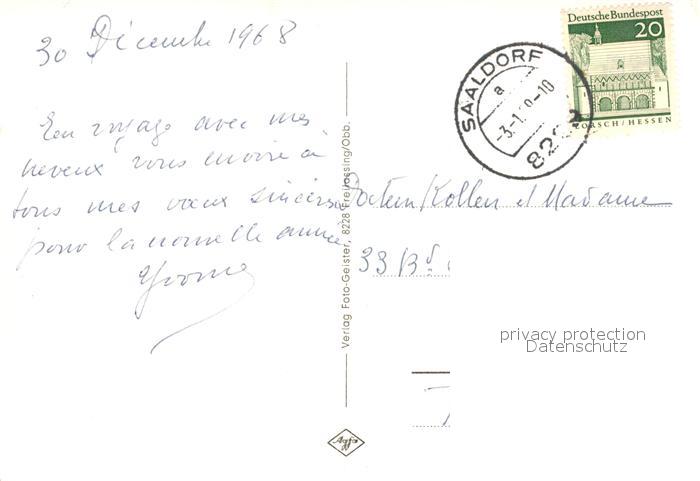 30 Décembre 1968
En voyage avec mes
neveux vous envoie à
tous mes vœux sincères
pour la nouvelle année
Yvonne
Verlag Foto-Geister, 8228 Freilassing/Obb.
Agfa
Deutsche Bundespost
20
LORSCH/HESSEN
SAALDORF
a
-3.-1. 9-10
822
Docteur Kollen et Madame
33 Bd
privacy protection
Datenschutz